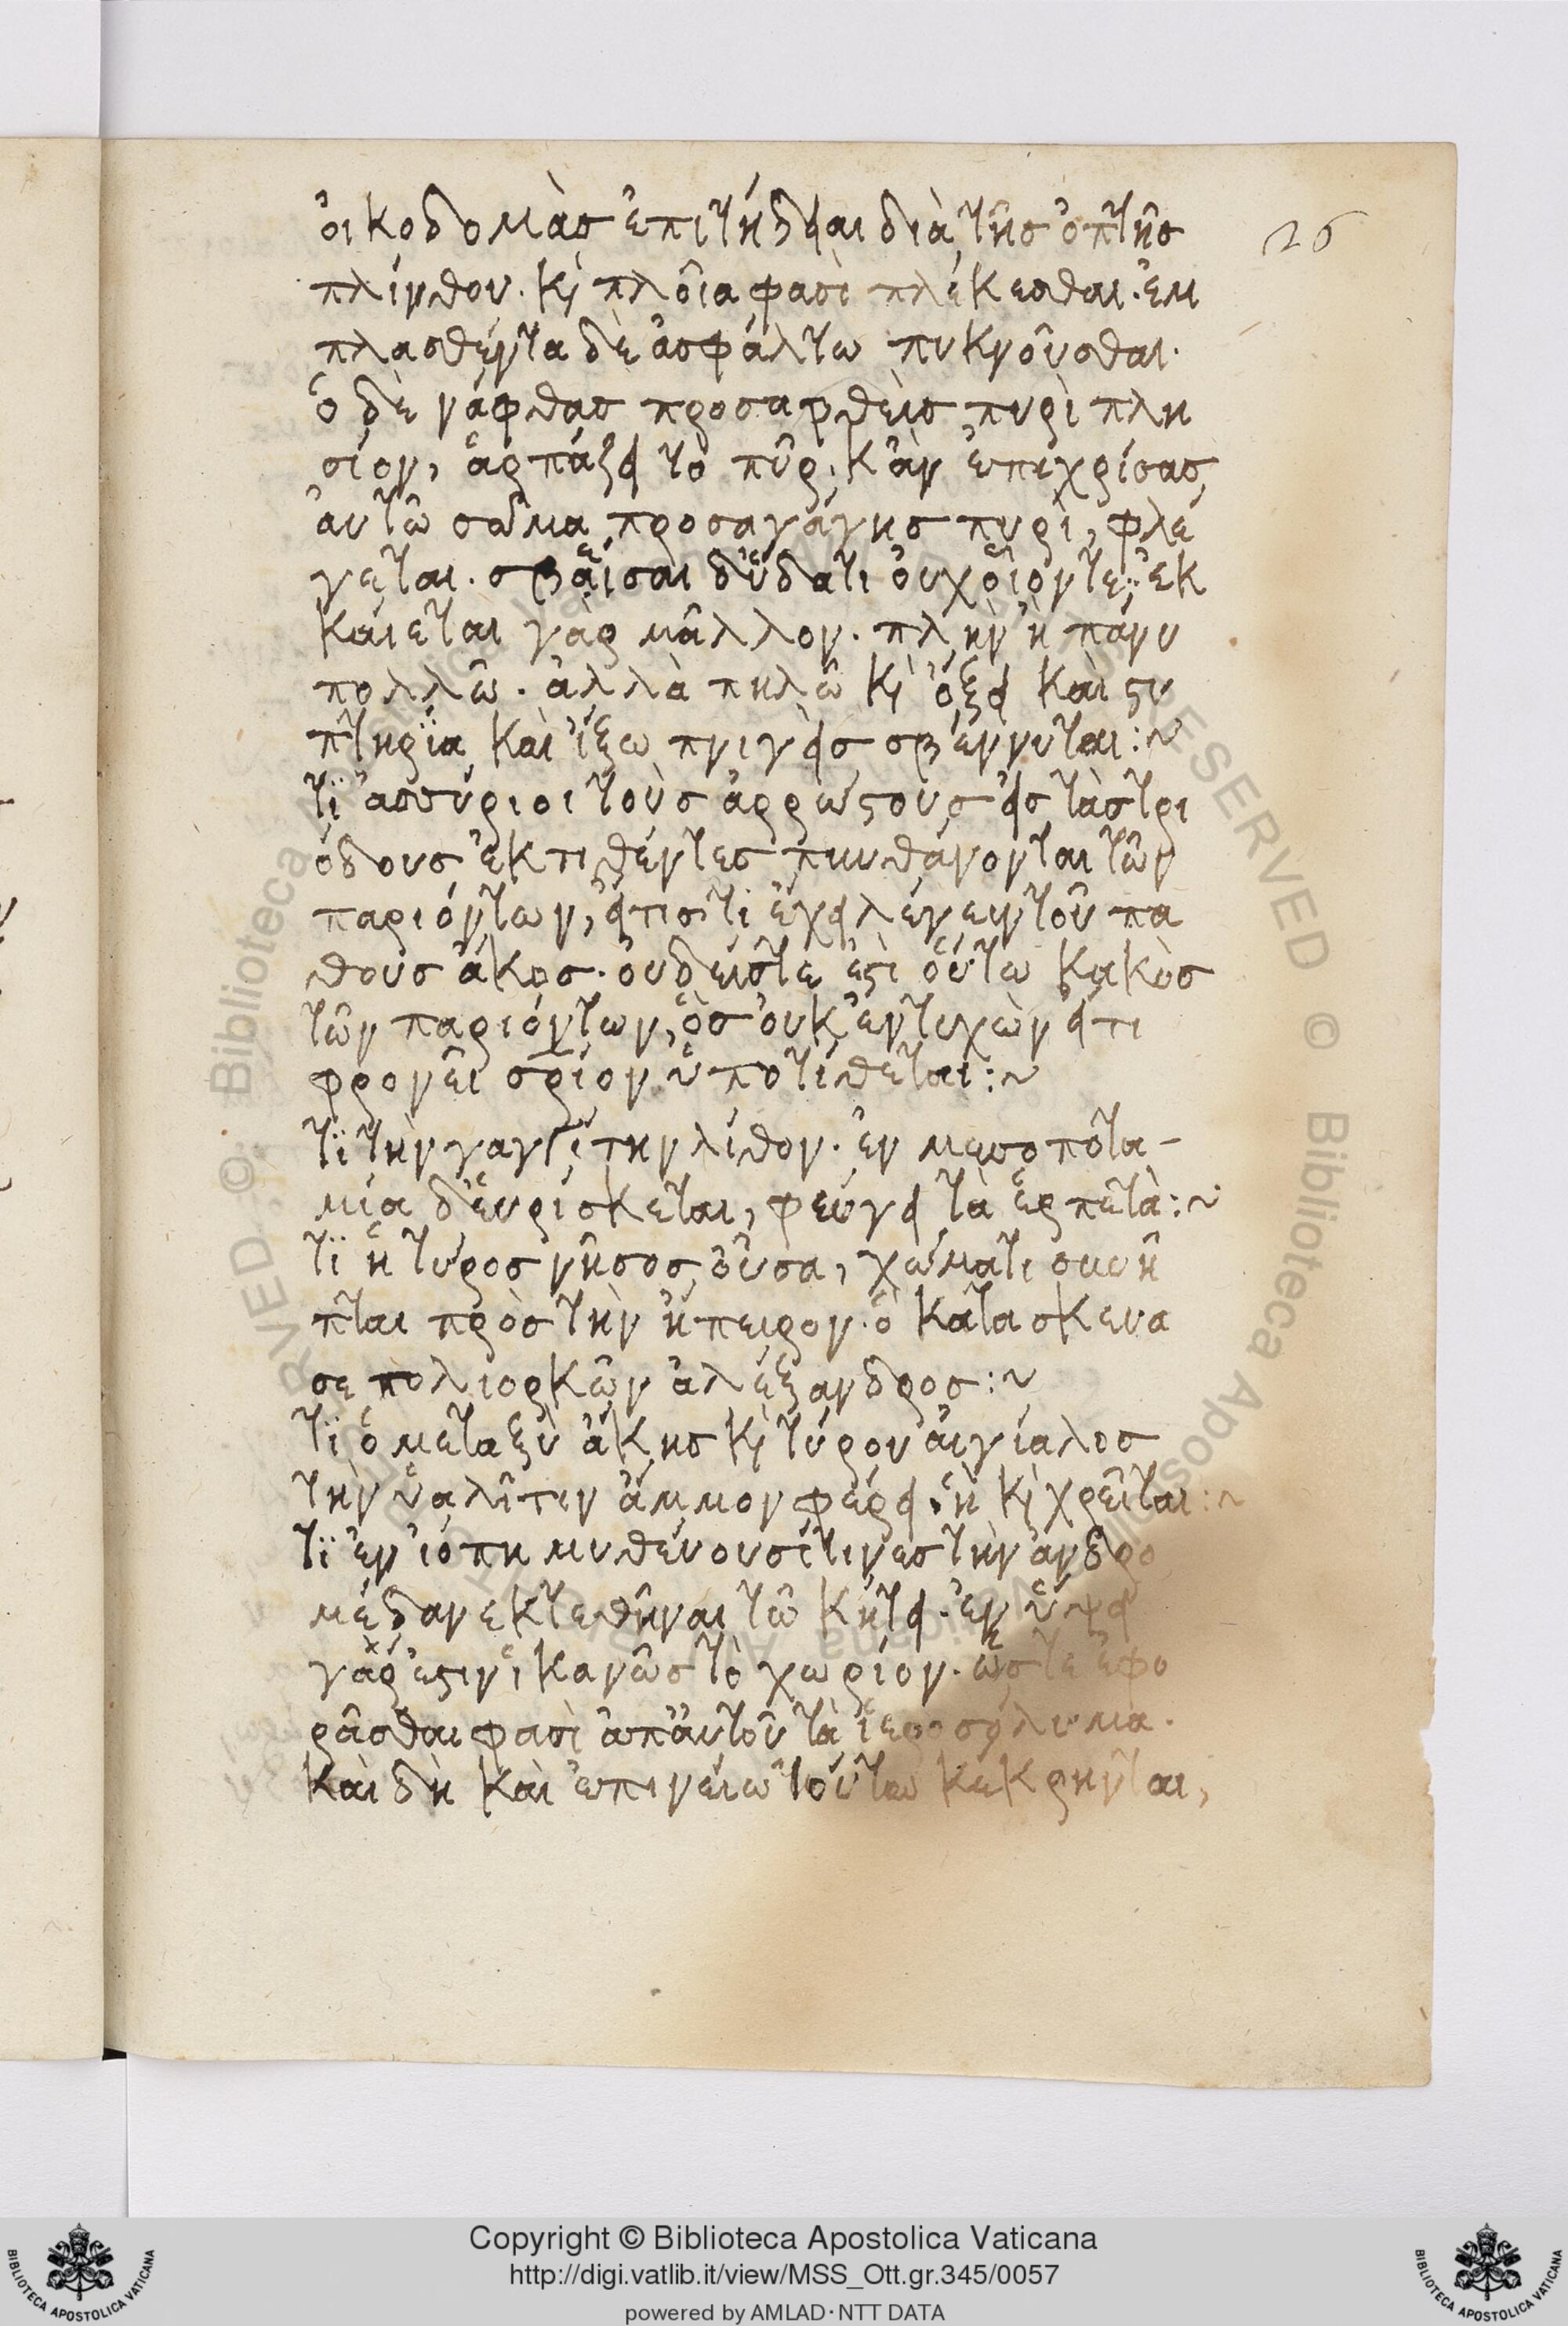 26
ὀικοδομὰσ ἐπιτήδειαι διὰ τῆσ ὀπτῆσ
πλίνθου. κὶ πλοῖα φασὶ πλέκεσθαι. ἐμ
πλασθέντα δὲ ἀσφάλτω πυκνοῦσθαι.
ὁ δὲ νάφθασ προσαρθεὶσ πυρὶ πλη
σίον, ἁρπάζει τὸ πῦρ. κἂν ἐπιχρίσασ
ἀυτῶ σῶμα προσαγάγησ πυρὶ, φλέ
γεται. σβέσαι δ' ὕδατι ὀυχ' οἷον τε. ἐκ
κάιεται γὰρ μᾶλλον. πλὴν ἢ πάνυ
πολλῶ. ἀλλὰ πηλῶ κὶ ὄξει καὶ ςυ
πτηρία καὶ ἰξω πνιγεὶσ σβέννυται:~
Τϊ ἀσσύριοι τοὺσ ἀρρώςουσ εἰσ τὰσ τρι
όδουσ ἐκτιθέντεσ πυνθάνονται τῶν
παριόντων, εἴτισ τὶ ἔχει λέγειν τοῦ πά
θουσ ἄκοσ. ὀυδείσ τε ἐςὶ ὅυτω κακὸσ
τῶν παριόντων, ὃσ ὀυκ ἐντυχὼν εἴτι
φρονεῖ σρίον ὑποτίθεται:~
Τϊ τὴν γαγγίτην λίθον. ἐν μεσοποτα-
μία δ' ἑυρίσκεται, φεύγει τὰ ἑρπετὰ:~
Τϊ ἡ τύροσ νῆσοσ οὖσα, χώματι συνῆ
πται πρὸσ τὴν ἤπειρον. ὁ κατασκευα
σε πολιορκῶν ἀλέξανδροσ:~
Τϊ ὁ μεταξὺ ἄκησ κὶ τύρου ἀιγίαλοσ
τὴν ὑαλῖτιν ἄμμον φέρει. ἡ κὶ χρεῖται:~
Τϊ ἐν ἰόπη μυθέυουσί τινεσ τὴν ἀνδρο
μέδαν ἐκτεθῆναι τῶ κήτει. ἐν ὕψει
γάρ ἐςιν ἱκανῶσ τὸ χωρίον. ὥστε ἐφο
ρᾶσθαι φασὶ ἀπ' ἀυτοῦ τὰ ἱεροσόλυμα.
καὶ δὴ καὶ ἐπινείω τούτω κεκρηνται,
Copyright © Biblioteca Apostolica Vaticana
http://digi.vatlib.it/view/MSS_Ott.gr.345/0057
powered by AMLAD·NTT DATA